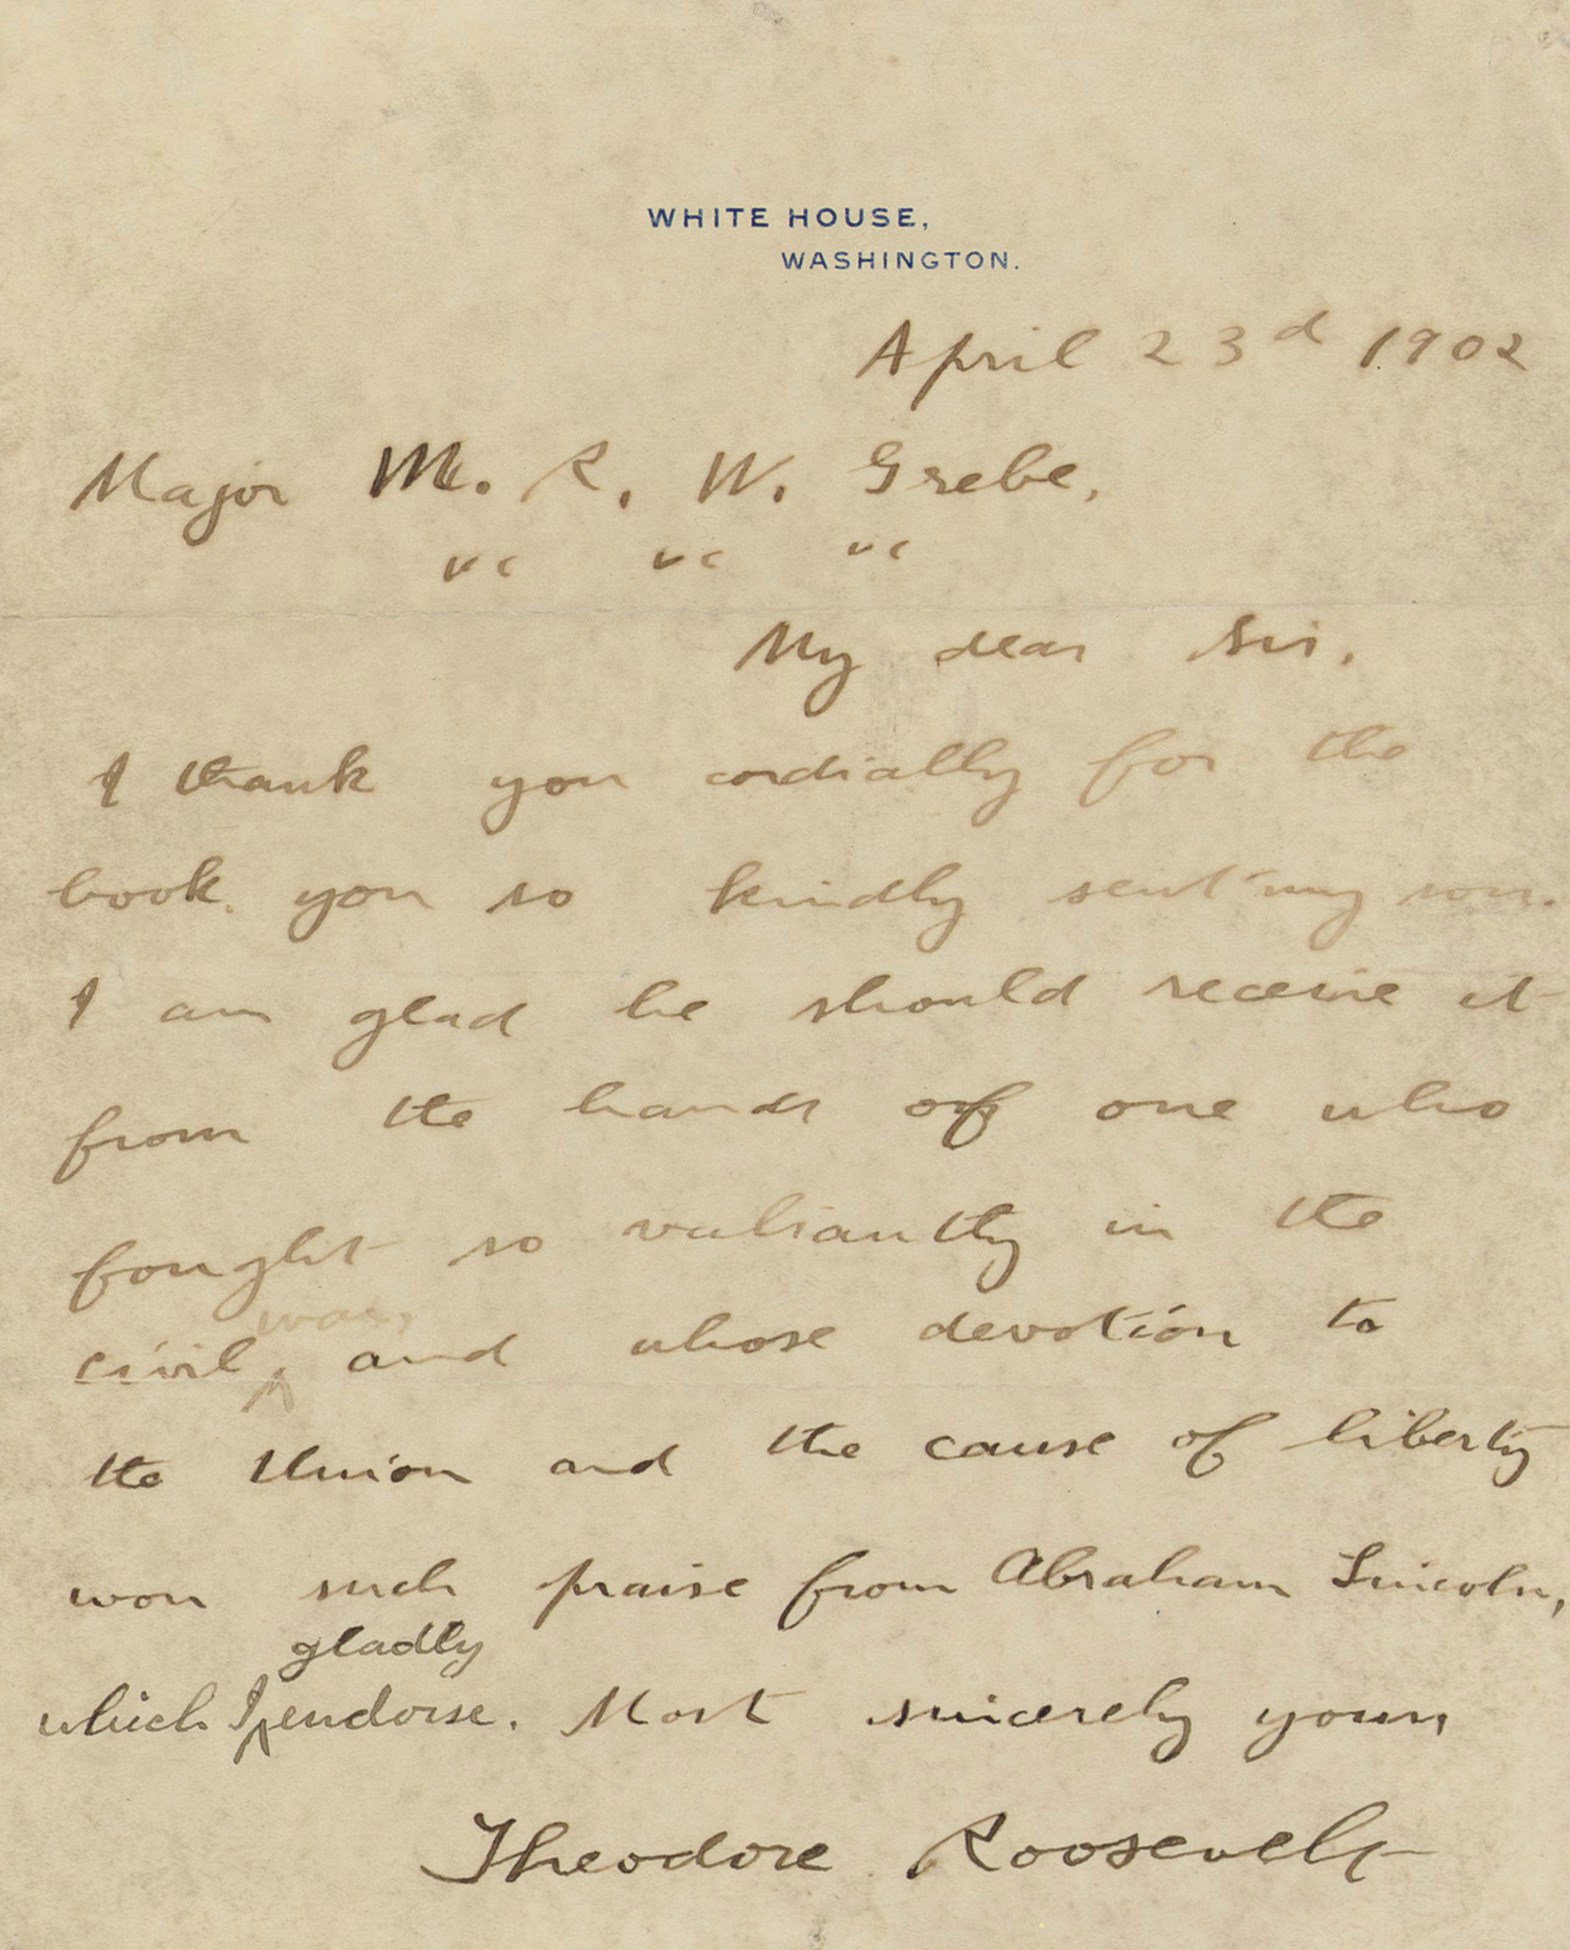 WHITE HOUSE,
WASHINGTON.
April 23d 1902
Major M. R. W. Grebe,
" " "
My dear Sir,
I thank you cordially for the
book you so kindly sent my son.
I am glad he should receive it
from the hands of one who
fought so valiantly in the
war,
civil ^ and whose devotion to
the Union and the cause of liberty
won such praise from Abraham Lincoln,
gladly
which I ^ endorse. Most sincerely yours,
Theodore Roosevelt